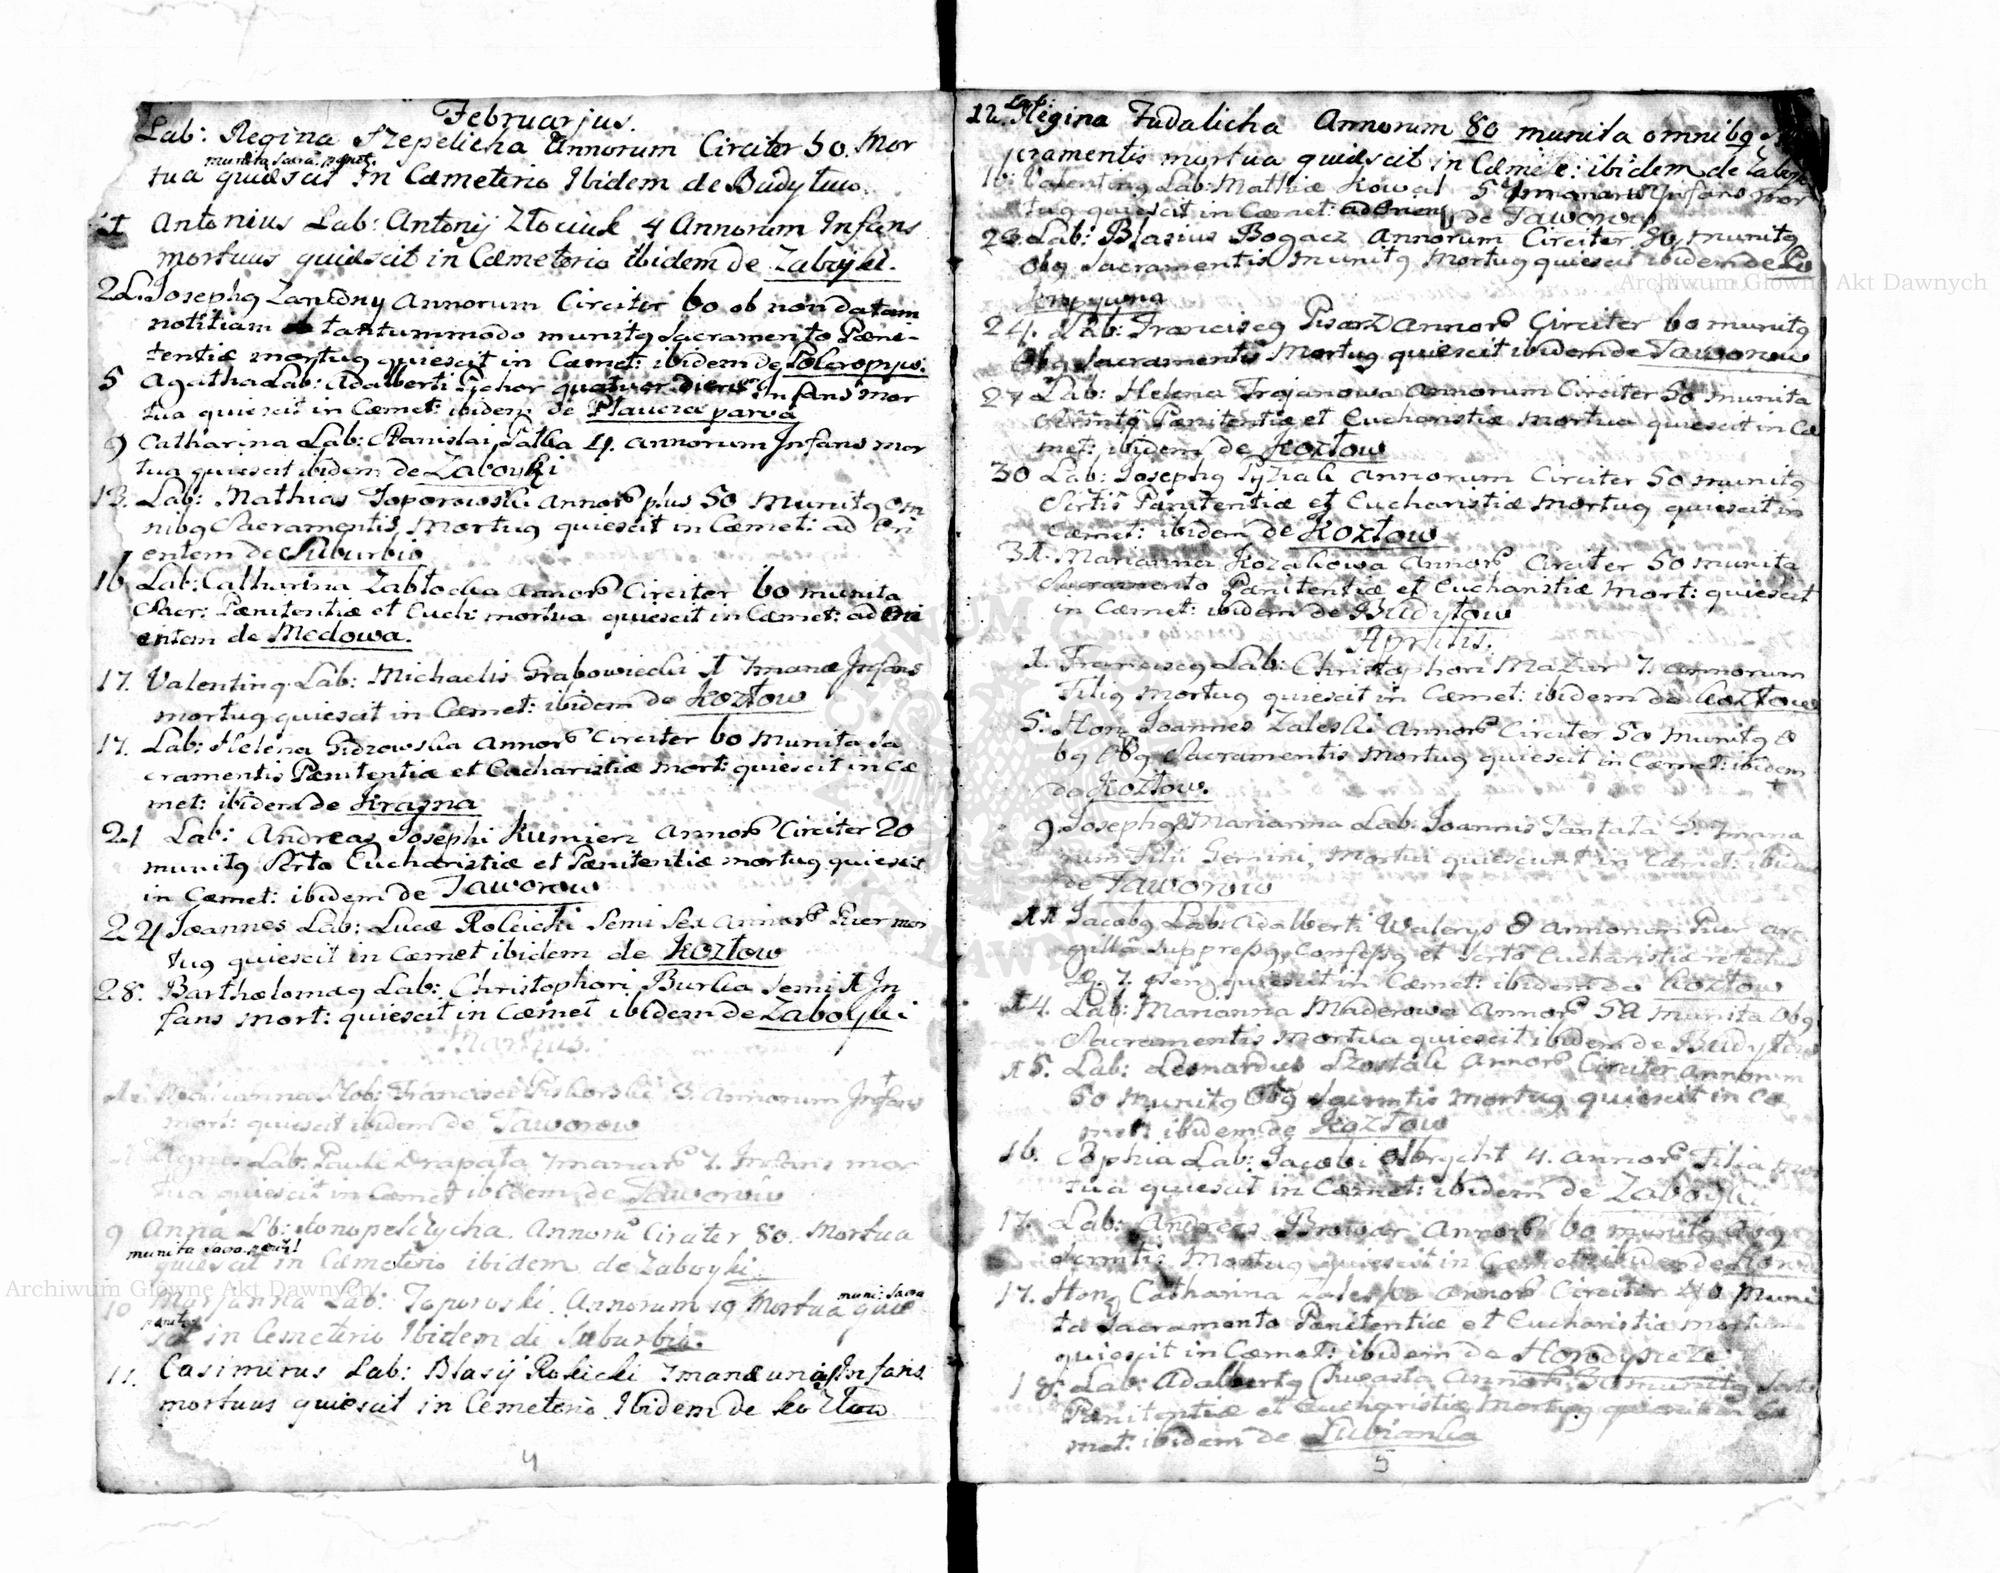 Februarjus.
Lab: Regina Szepelicha Annorum Circiter 50. Mor
munita Sacra: penit:
tua quiescit In Cæmeterio Ibidem de Budyłuw.
1 Antonius Lab: Antonij Złociuk 4 Annorum Infans
mortuus quiescit in Cæmeterio ibidem de Zaboyki.
2 L: Josephq Annorum Circiter 60 ob non datam
notitiam tantummodo munitq Sacramento Pæni-
tentiæ mortuq quiescit in Cæmet: ibidem de
5 Agatha Lab: Adalberti quatuor dierum Infans mor
tua quiescit in Cæmet: ibidem de Plaucza parva
9 Catharina Lab: Stanislai Salba 4. annorum Infans mor
tua quiescit ibidem de Zaboyki
13. Lab: Mathias Toporowski annor plus 50 munitq om
nibq Sacramentis, Mortuq quiescit in Cæmet: ad Ori
entem de Suburbio
16 Lab: Catharina Zabłocka annor Circiter 60 munita
Sacr: Pænitentiæ et Euch: mortua quiescit in Cæmet: ad Ori
entem de Medowa.
17. Valentinq Lab: Michaelis Grabowiecki 1 7manæ Infans
mortuq quiescit in Cæmet: ibidem de Kozłow
17. Lab: Helena Gidzowska annor Circiter 60 Munita Sa
cramentis Pænitentiæ et Eucharistiæ mort: quiescit in Cæ
met: ibidem de Krasna
21 Lab: Andreas Josephi Kumierz annor Circiter 20
munitq Scrto Eucharistiæ et Pænitentiæ mortuq quiescit
in Cæmet: ibidem de Jaworow
24 Joannes Lab: Lucæ Rokicki Semi Sex Annor Puer mor
tuq quiescit in Cæmet ibidem de Kozłow
28. Bartholomæq Lab: Christophori Burka Semi 1 In
fans mort: quiescit in Cæmet ibidem de Zaboyki
Martjus.
1. Marianna Nob: Francisci Piskorski 3. annorum Infans
mort: quiescit ibidem de Jaworow
Agnes Lab: Pauli Drapała 7manar 7. Infans mor
tua quiescit in Cæmet ibidem de Jaworow
9 Anna Lb: Konopelczycha. Annoru Circiter 80. Mortua
munita sacra: penit:
quiescit in Cæmeterio ibidem de Zaboyki.
10 Marjanna Lab: Toporoski. Annorum 19 Mortua quie
muni: Sacra
penit:
scit in Cemeterio Ibidem de Suburbio.
11. Casimirus Lab: Blasij Rokicki 7manæ unius Infans.
mortuus quiescit in Cemeterio Ibidem de Kozłow
4
12. Lab: Regina Fudalicha Annorum 80 munita omnibq Sa
cramentis mortua quiescit in Cæmete: ibidem de Zaboyki
16 Valentinq Lab: Mathiæ Kowal 5 7manarum Infans mor
tuq quiescit in Cæmet: ad Orien de Jaworow
23 Lab: Blasius Bogacz Annorum Circiter 80, munitq
Obq Sacramentis munitq Mortuq quiescit ibidem de Po
24. Lab: Franciscq Pisarz Annor Circiter 60 munitq
Obq Sacramentis Mortuq quiescit ibidem de Jaworow
27 Lab: Helena Trojanowa Annorum Circiter 50 munita
Pænitentiæ et Eucharistiæ mortua quiescit in Cæ
met: ibidem de Kozłow
30 Lab: Josephq Annorum Circiter 50 munitq
Scrtis Pænitentiæ et Eucharistiæ mortuq quiescit in
Cæmet: ibidem de Kozłow
31. Marianna Kozakowa Annor Circiter 50 munita
Sacramento Pænitentiæ et Eucharistiæ Mort: quiescit
in Cæmet: ibidem de Budyłow
Aprilis.
1. Franciscq Lab: Christophori Mazur 7. annorum
Filiq mortuq quiescit in Cæmet: ibidem de Kozłow
5. Hon: Joannes Zaleski Annor Circiter 50 munitq
Obq Sacramentis Mortuq quiescit in Cæmet: ibidem
de Kozłow.
9 Josephq & Marianna Lab: Joannis Tantała 5. 7mana
rum Filii Gemini, Mortui quiescunt in Cæmet: ibidem
de Jaworow
11 Jacobq Lab: Adalberti Walerys 8 Annorum Puer ar
gilla suppressq, Confessq et Scrto Eucharistiæ refectus
quiescit in Cæmet: ibidem de Kozłow
14. Lab: Marianna Maderowa Annor 50 munita Obq
Sacramentis mortua quiescit ibidem de Budyłow
15. Lab: Leonardus Szostak Annor Circiter annorum
50 Munitq Obq Sacrmtis mortuq quiescit in Cæ
met: ibidem de Kozłow
16. Sophia Lab: Jacobi Olbrycht 4. annor Filia mor
tua quiescit in Cæmet: ibidem de Zaboyki
17. Lab: Andreas Browar Annor 60 munitq Obq
Scrmtis Mortuq quiescit in Cæmet: ibidem de
17. Hon: Catharina Zaleska Annor Circiter 40 Muni
ta Sacramento Pænitentiæ et Eucharistiæ mortua
quiescit in Cæmet: ibidem de Horodyszcze
18. Lab: Adalbertq Chwasta Annor: 50 munitq Scrto
Pænitentiæ et Eucharistiæ Mortuq quiescit in Cæ
met: ibidem de Łubianka
5
Archiwum Główne Akt Dawnych
Archiwum Główne Akt Dawnych